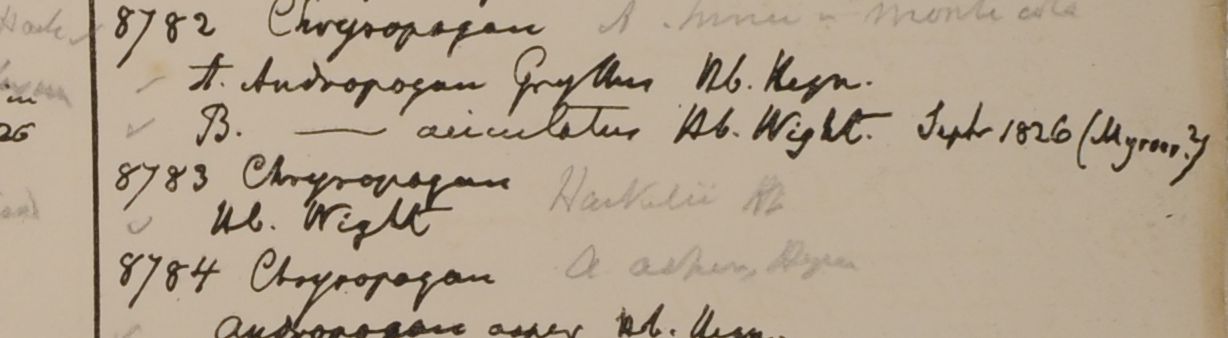 8782 Chrysopogon A. monticola
A. Andropogon Gryllus Hb. Heyn.
B. —— aciculatus Hb. Wight. Septr 1826 (Mysore?)
8783 Chrysopogon
Hb. Wight
8784 Chrysopogon A asper, Heyn
Andropogon asper Hb. Heyn.
26